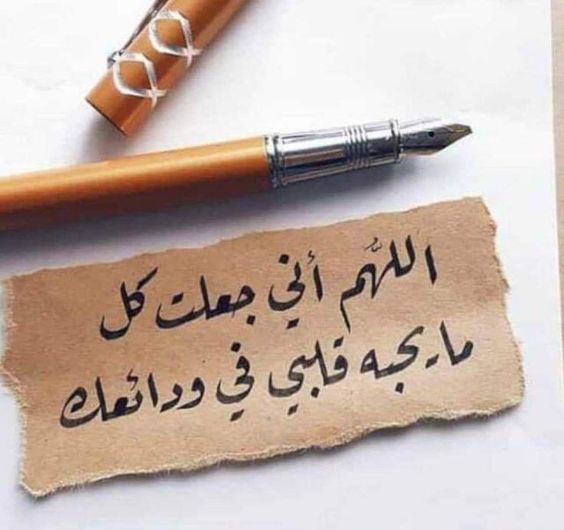 اللهُم أني جعلت كل
ما يحبه قلبي في ودائعك